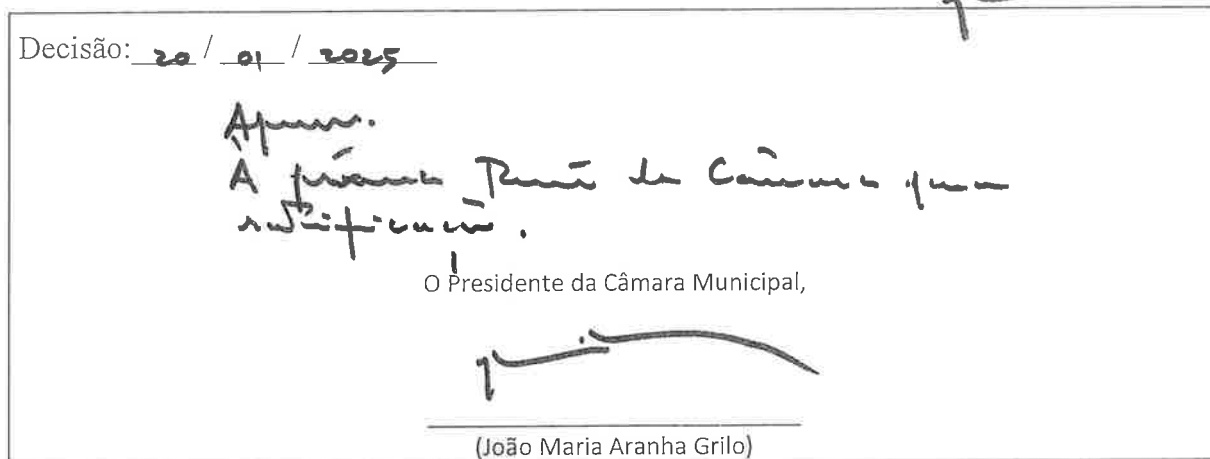 Decisão: 20 / 01 / 2025
Aprovo.
À próxima Reunião de Câmara para
ratificação.
O Presidente da Câmara Municipal,
(João Maria Aranha Grilo)